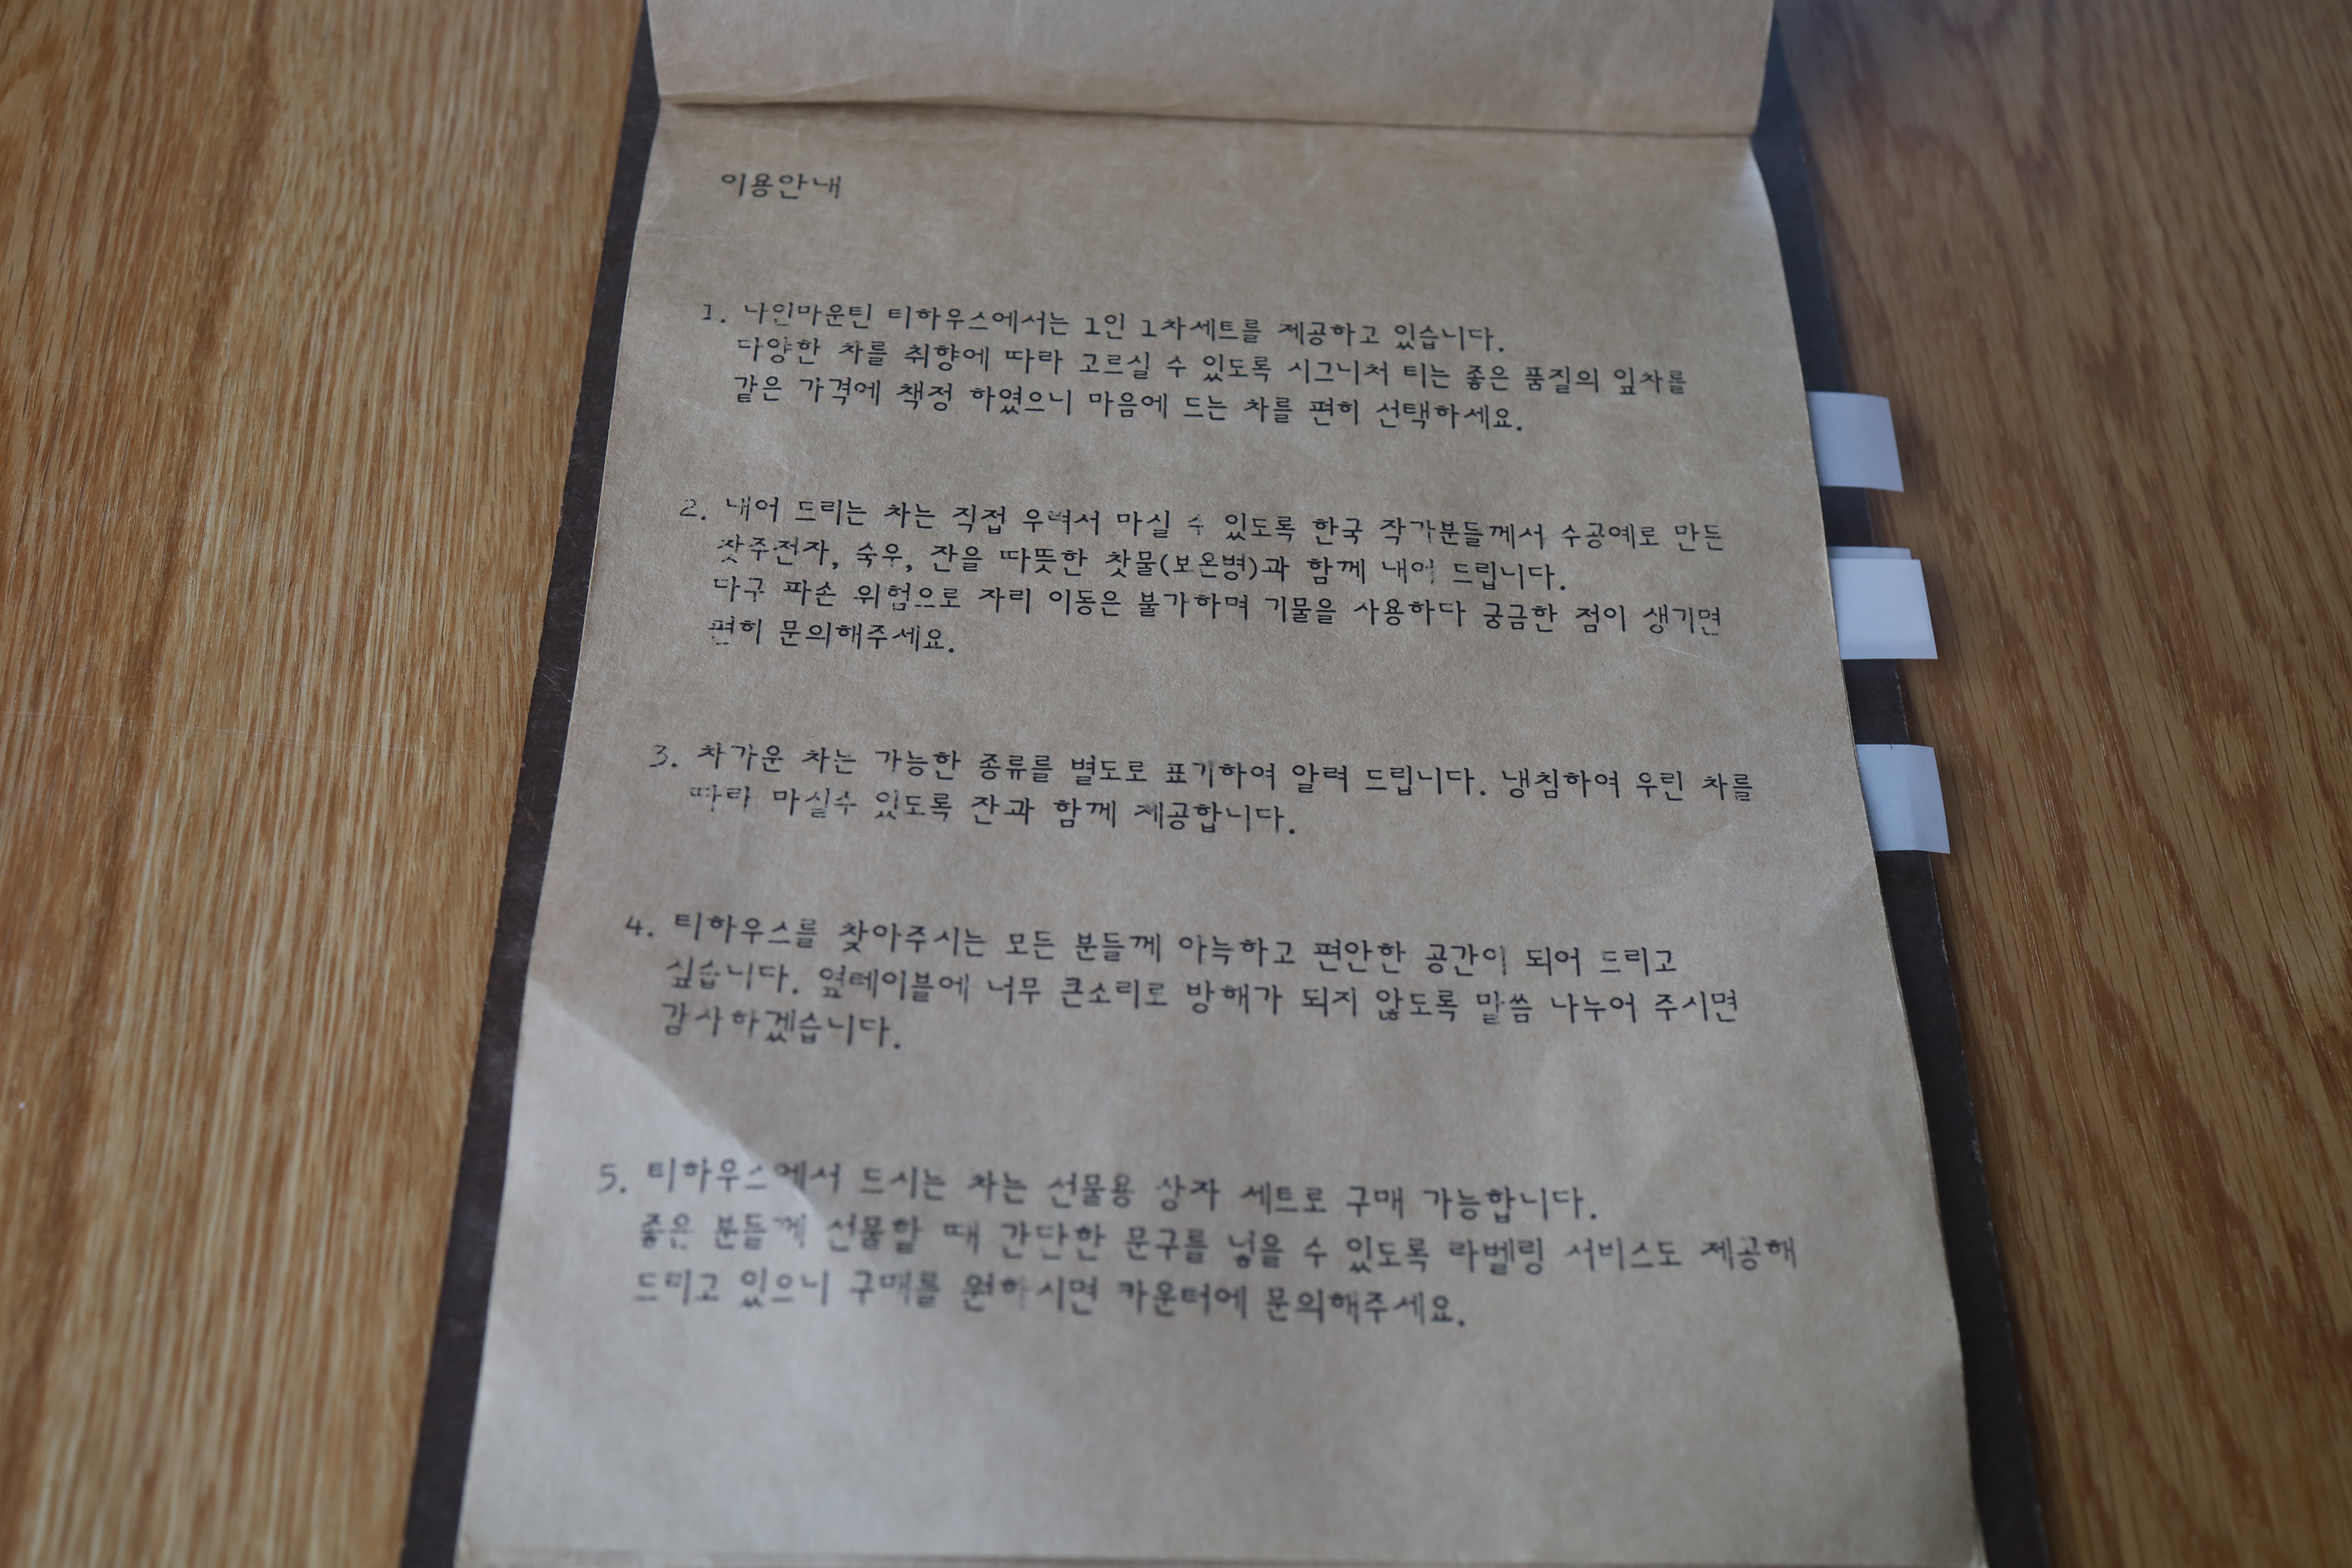 이용안내
1. 나인마운틴 티하우스에서는 1인 1차세트를 제공하고 있습니다.
다양한 차를 취향에 따라 고르실 수 있도록 시그니처 티는 좋은 품질의 잎차를
같은 가격에 책정 하였으니 마음에 드는 차를 편히 선택하세요.
2. 내어 드리는 차는 직접 우려서 마실 수 있도록 한국 작가분들께서 수공예로 만든
찻주전자, 숙우, 잔을 따뜻한 찻물(보온병)과 함께 내어 드립니다.
다구 파손 위험으로 자리 이동은 불가하며 기물을 사용하다 궁금한 점이 생기면
편히 문의해주세요.
3. 차가운 차는 가능한 종류를 별도로 표기하여 알려 드립니다. 냉침하여 우린 차를
따라 마실수 있도록 잔과 함께 제공합니다.
4. 티하우스를 찾아주시는 모든 분들께 아늑하고 편안한 공간이 되어 드리고
싶습니다. 옆테이블에 너무 큰소리로 방해가 되지 않도록 말씀 나누어 주시면
감사하겠습니다.
5. 티하우스에서 드시는 차는 선물용 상자 세트로 구매 가능합니다.
좋은 분들께 선물할 때 간단한 문구를 넣을 수 있도록 라벨링 서비스도 제공해
드리고 있으니 구매를 원하시면 카운터에 문의해주세요.